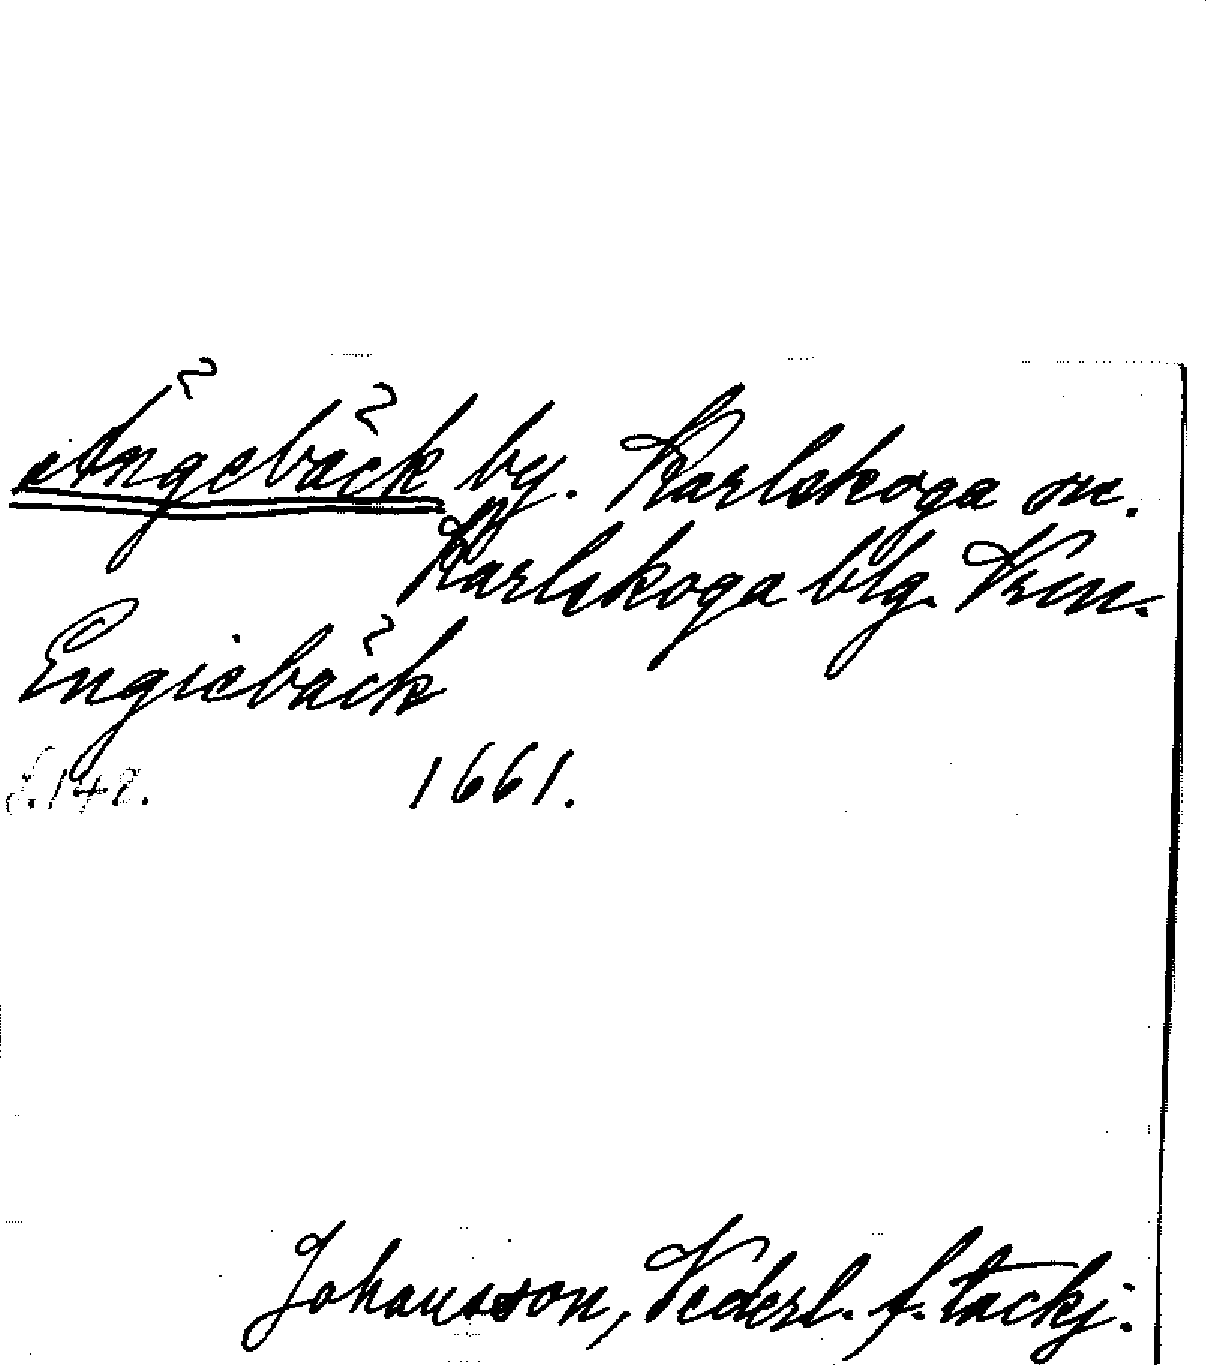 Ängebäck by. Karlskoga sn.
Karlskoga blg. Krm.
Engiebäck
f. 148. 1661.
Johansson, Vederl. f. tackj.